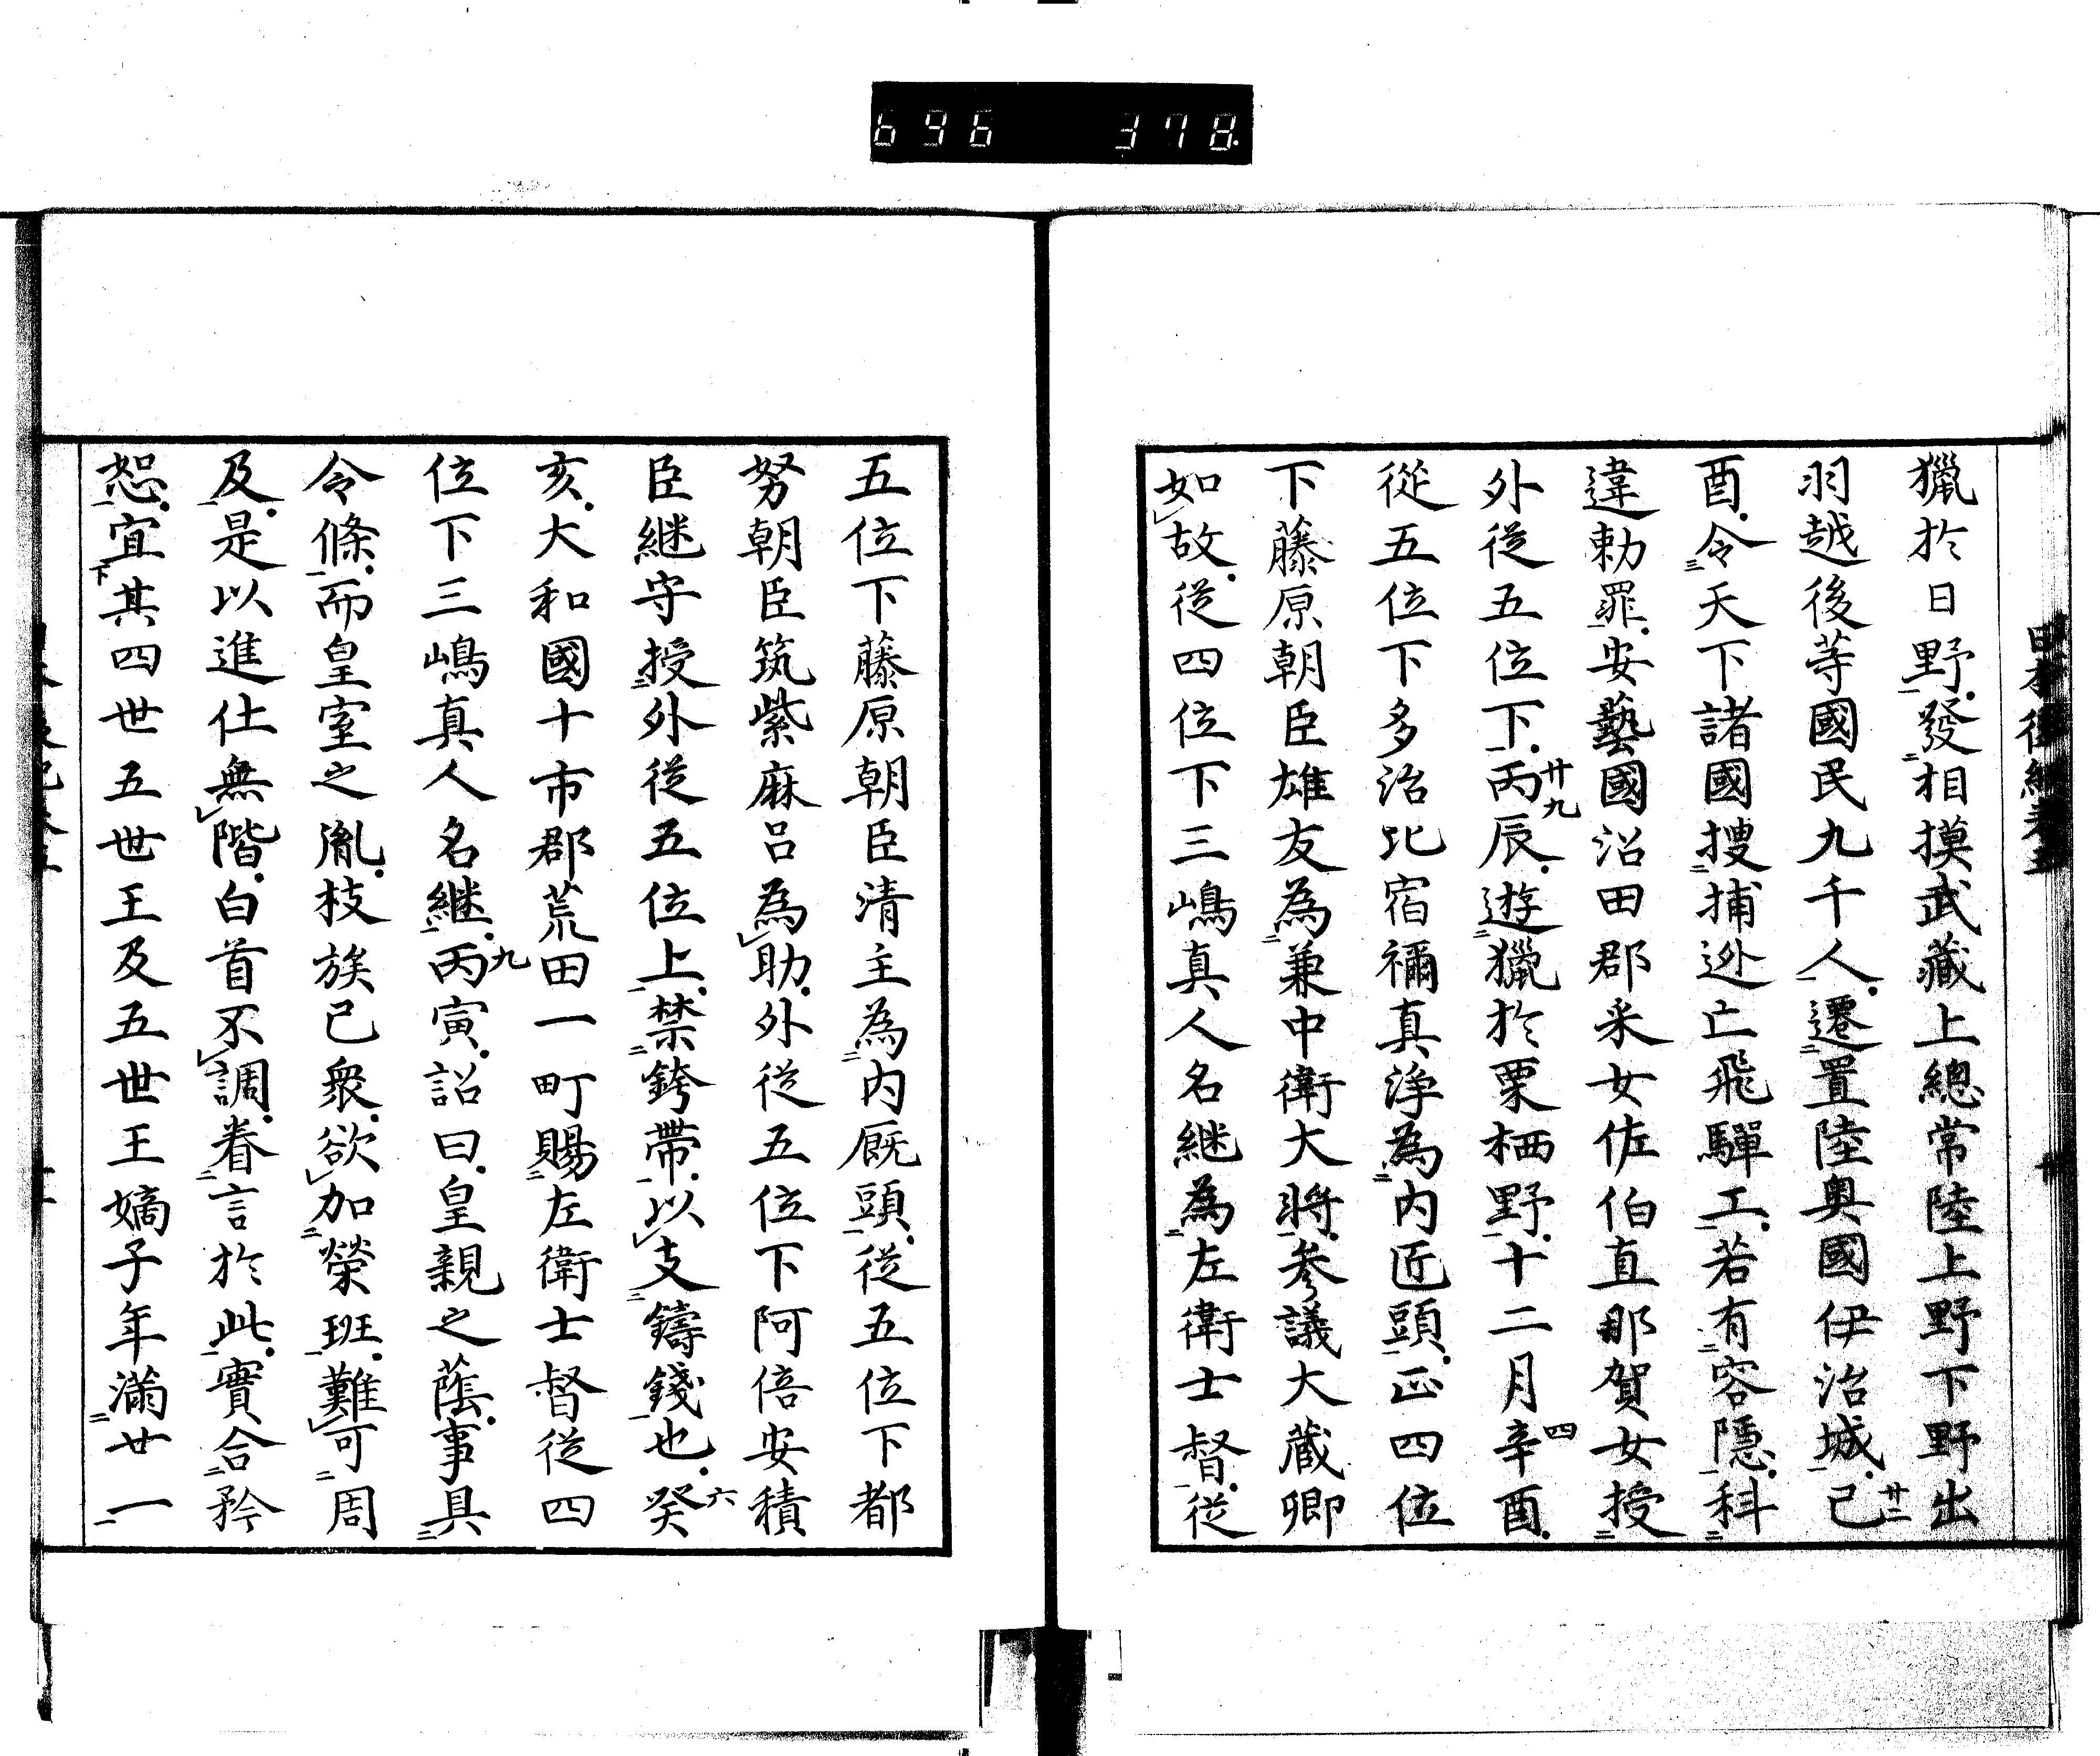 696 378
獵於日野發相摸武藏上總常陸上野下野出
羽越後等國民九千人遷置陸奥國伊治城己廿二
酉令天下諸國搜捕迯亡飛騨工若有容隱科
違勅罪安藝國沼田郡采女佐伯直那賀女授
外從五位下丙辰廿九遊獵於栗栖野十二月辛酉四
從五位下多治比宿禰真淨為内匠頭正四位
下藤原朝臣雄友為兼中衛大將參議大藏卿
如故從四位下三嶋真人名継為左衛士督從
五位下藤原朝臣清主為内厩頭從五位下都
努朝臣筑紫麻呂為助外從五位下阿倍安積
臣継守授外從五位上禁銙帶以支鑄錢也癸六
亥大和國十市郡荒田一町賜左衛士督從四
位下三嶋真人名継丙九寅詔曰皇親之蔭事具
令條而皇室之胤枝族已衆欲加榮班難可周
及是以進仕無階白首不調眷言於此實合矜
恕宜其四世五世王及五世王嫡子年滿廿一